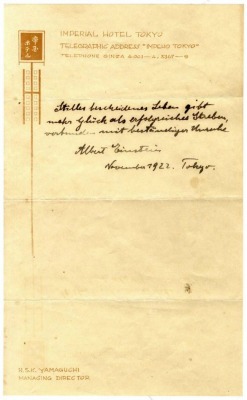 帝国
ホテル
IMPERIAL HOTEL TOKYO
TELEGRAPHIC ADDRESS "IMPEHO TOKYO"
TELEPHONE GINZA
Stilles bescheidenes Leben gibt
mehr Glück als erfolgreiches Streben,
verbunden mit beständiger Unruhe.
Albert Einstein
November 1922. Tokyo.
YAMAGUCHI
MANAGING DIRECTOR